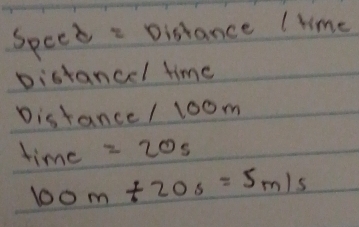 Speed = Distance / time
Distance/ time
Distance / 100m
time = 20s
100m ÷ 20s = 5m/s